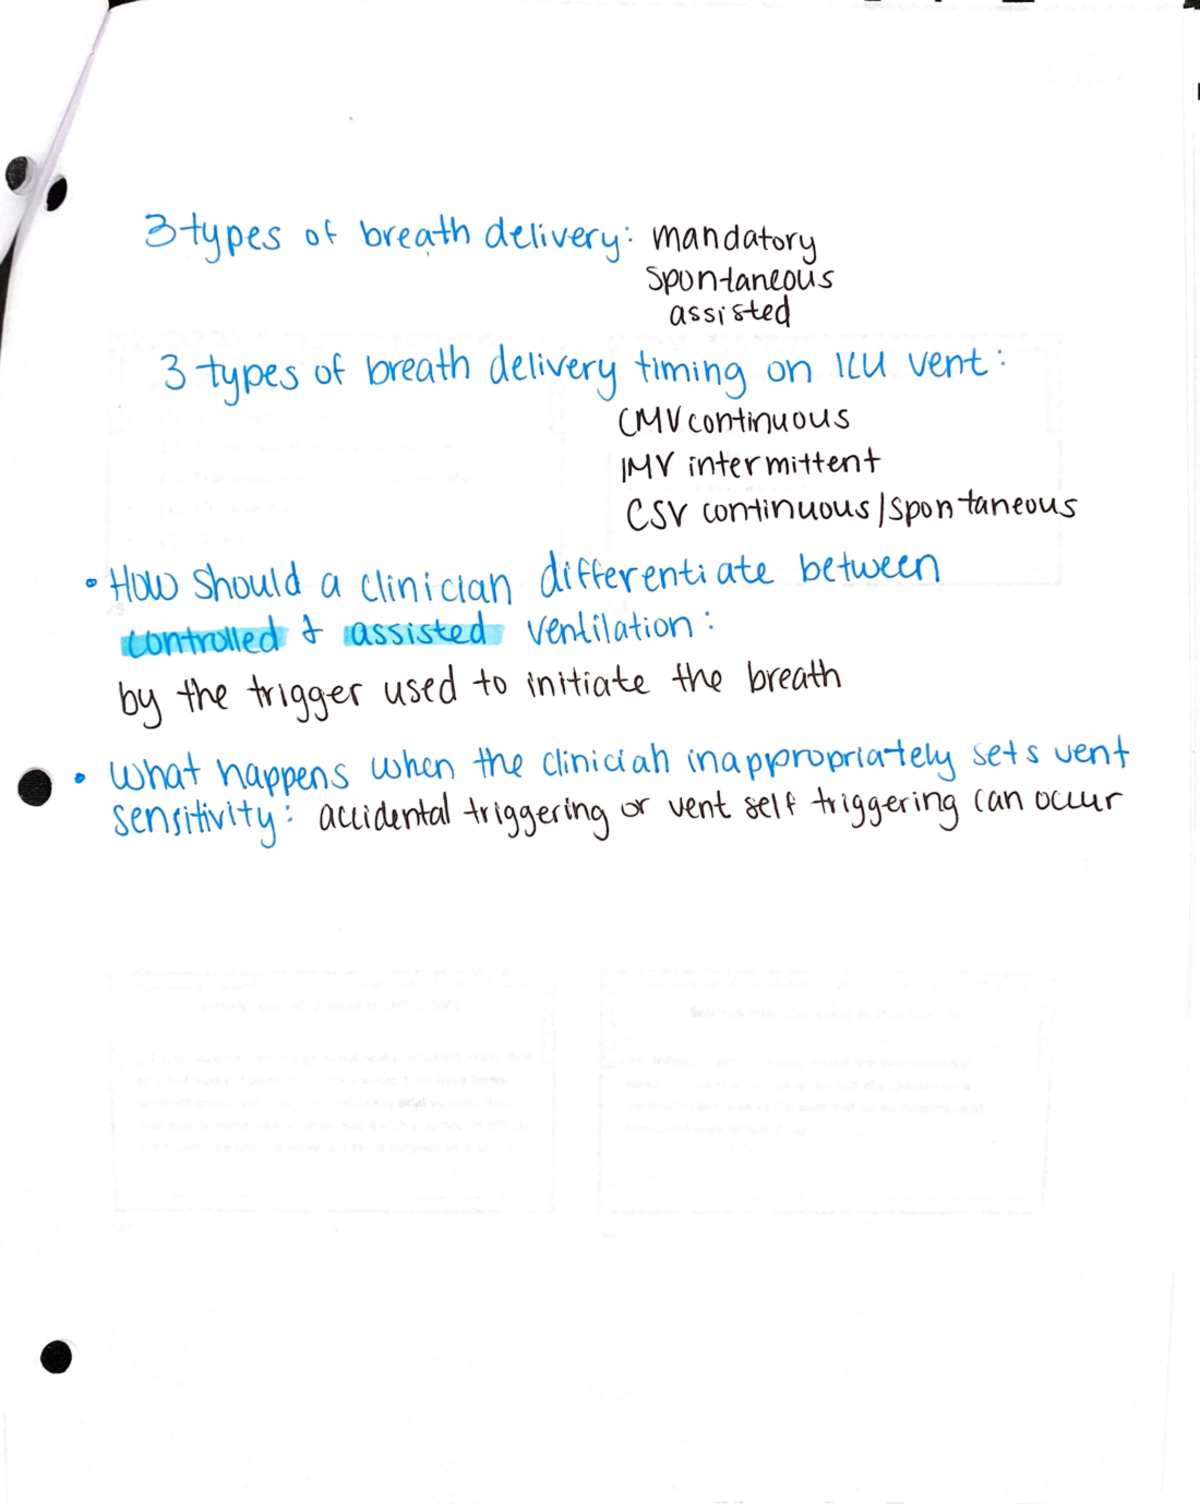 3 types of breath delivery: mandatory
spontaneous
assisted
3 types of breath delivery timing on ICU vent:
CMV continuous
IMV intermittent
CSV continuous/spontaneous
• How should a clinician differentiate between
controlled & assisted ventilation:
by the trigger used to initiate the breath
• What happens when the clinician inappropriately sets vent
sensitivity: accidental triggering or vent self triggering can occur